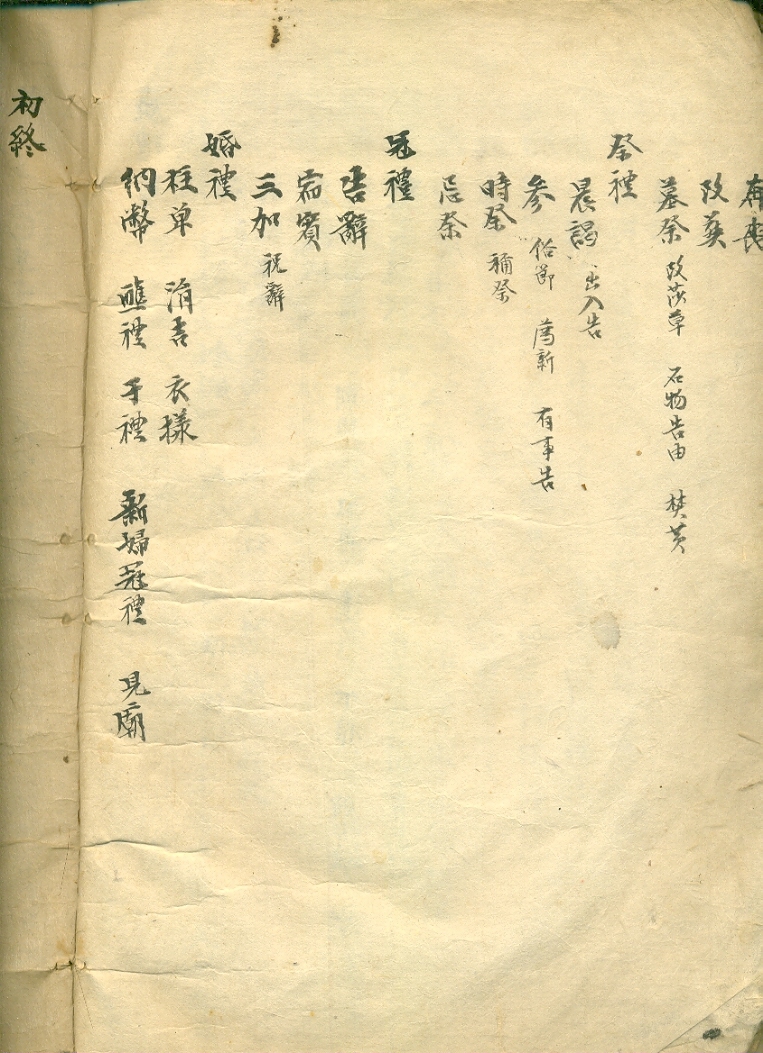 再喪
改葬
墓祭 改莎草 石物告由 焚黃
祭禮
晨謁 出入告
參 俗節 薦新 有事告
時祭 禰祭
忌祭
冠禮
告辭
宿賓
三加 祝辭
婚禮
柱單 涓吉 衣樣
納幣 醮禮 于禮 新婦冠禮 見廟
初終